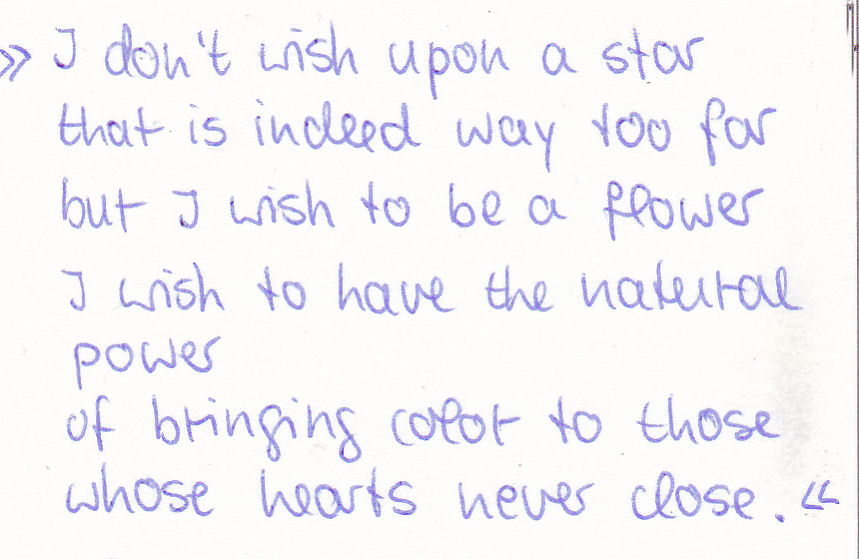 » I don't wish upon a star
that is indeed way too far
but I wish to be a flower
I wish to have the natural
power
of bringing color to those
whose hearts never close. «